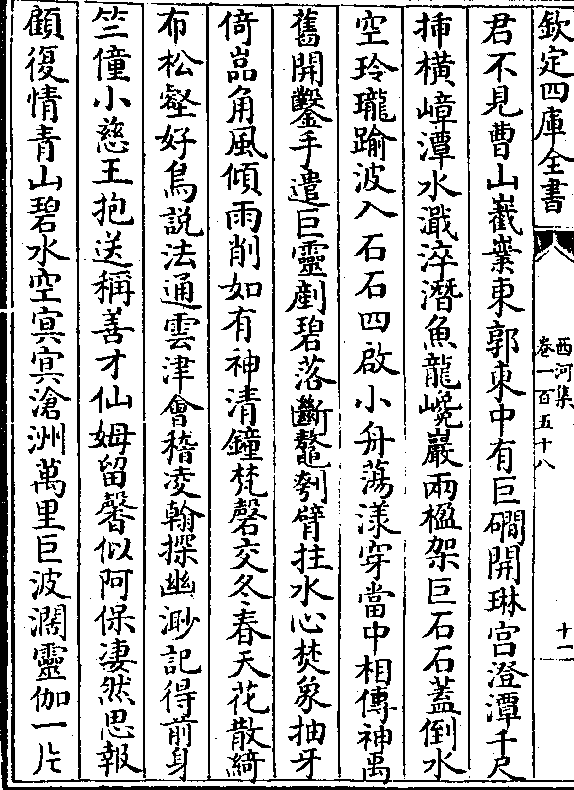 欽定四庫全書
西河集
卷一百五十八
十一
君不見曹山嶻嶪東郭東中有巨磵開琳宫澄潭千尺
揷橫嶂潭水濺淬潛魚龍巉巖兩楹架巨石石葢倒水
空玲瓏踰波入石石四啟小舟蕩漾穿當中相傳神禹
舊開鑿手遣巨靈劃碧落斷鼇刳臂拄水心焚象抽牙
倚嵓角風傾雨削如有神清鐘梵磬交冬春天花散綺
布松壑好鳥説法通雲津會稽凌翰探幽渺記得前身
竺僮小慈王抱送稱善才仙姆留馨似阿保凄然思報
顧復情青山碧水空冥冥滄洲萬里巨波濶靈伽一片